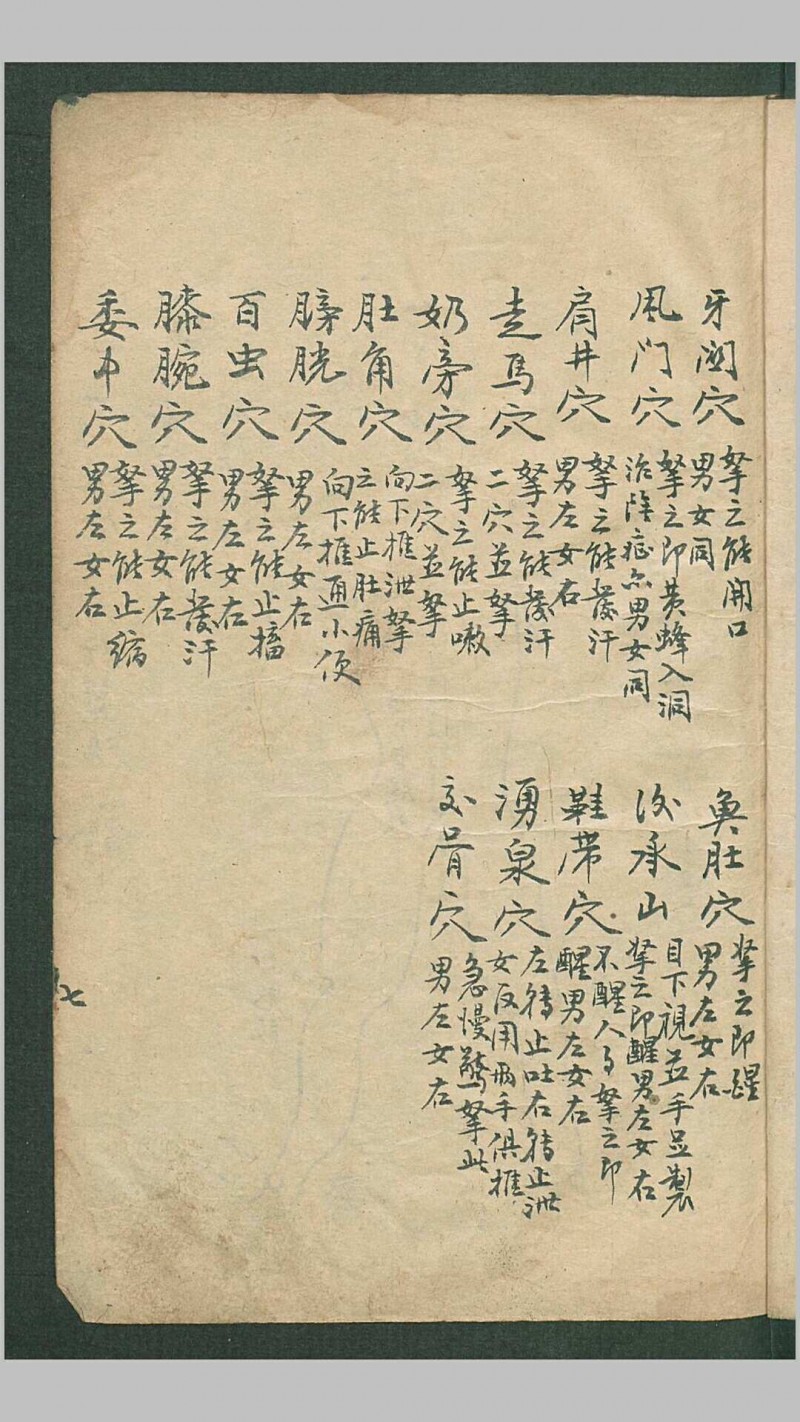 牙関穴
拏之能開口
男女同
風门穴
拏之即黄蜂入洞
治陰症亦男女同
肩井穴
拏之能發汗
男左女右
走馬穴
拏之能發汗
二穴並拏
奶旁穴
拏之能止嗽
二穴並拏
肚角穴
向下推泄拏
之能止肚痛
膀胱穴
向下推通小便
男左女右
百虫穴
拏之能止搐
男左女右
膝腕穴
拏之能發汗
男左女右
委中穴
拏之能止縮
男左女右
魚肚穴
拏之即醒
男左女右
後承山
目下視並手足製
拏之即醒男左女右
鞋帯穴
不醒人事拏之即
醒男左女右
湧泉穴
左转止吐右转止泄
女反用兩手俱推
交骨穴
急慢驚拏此
男左女右